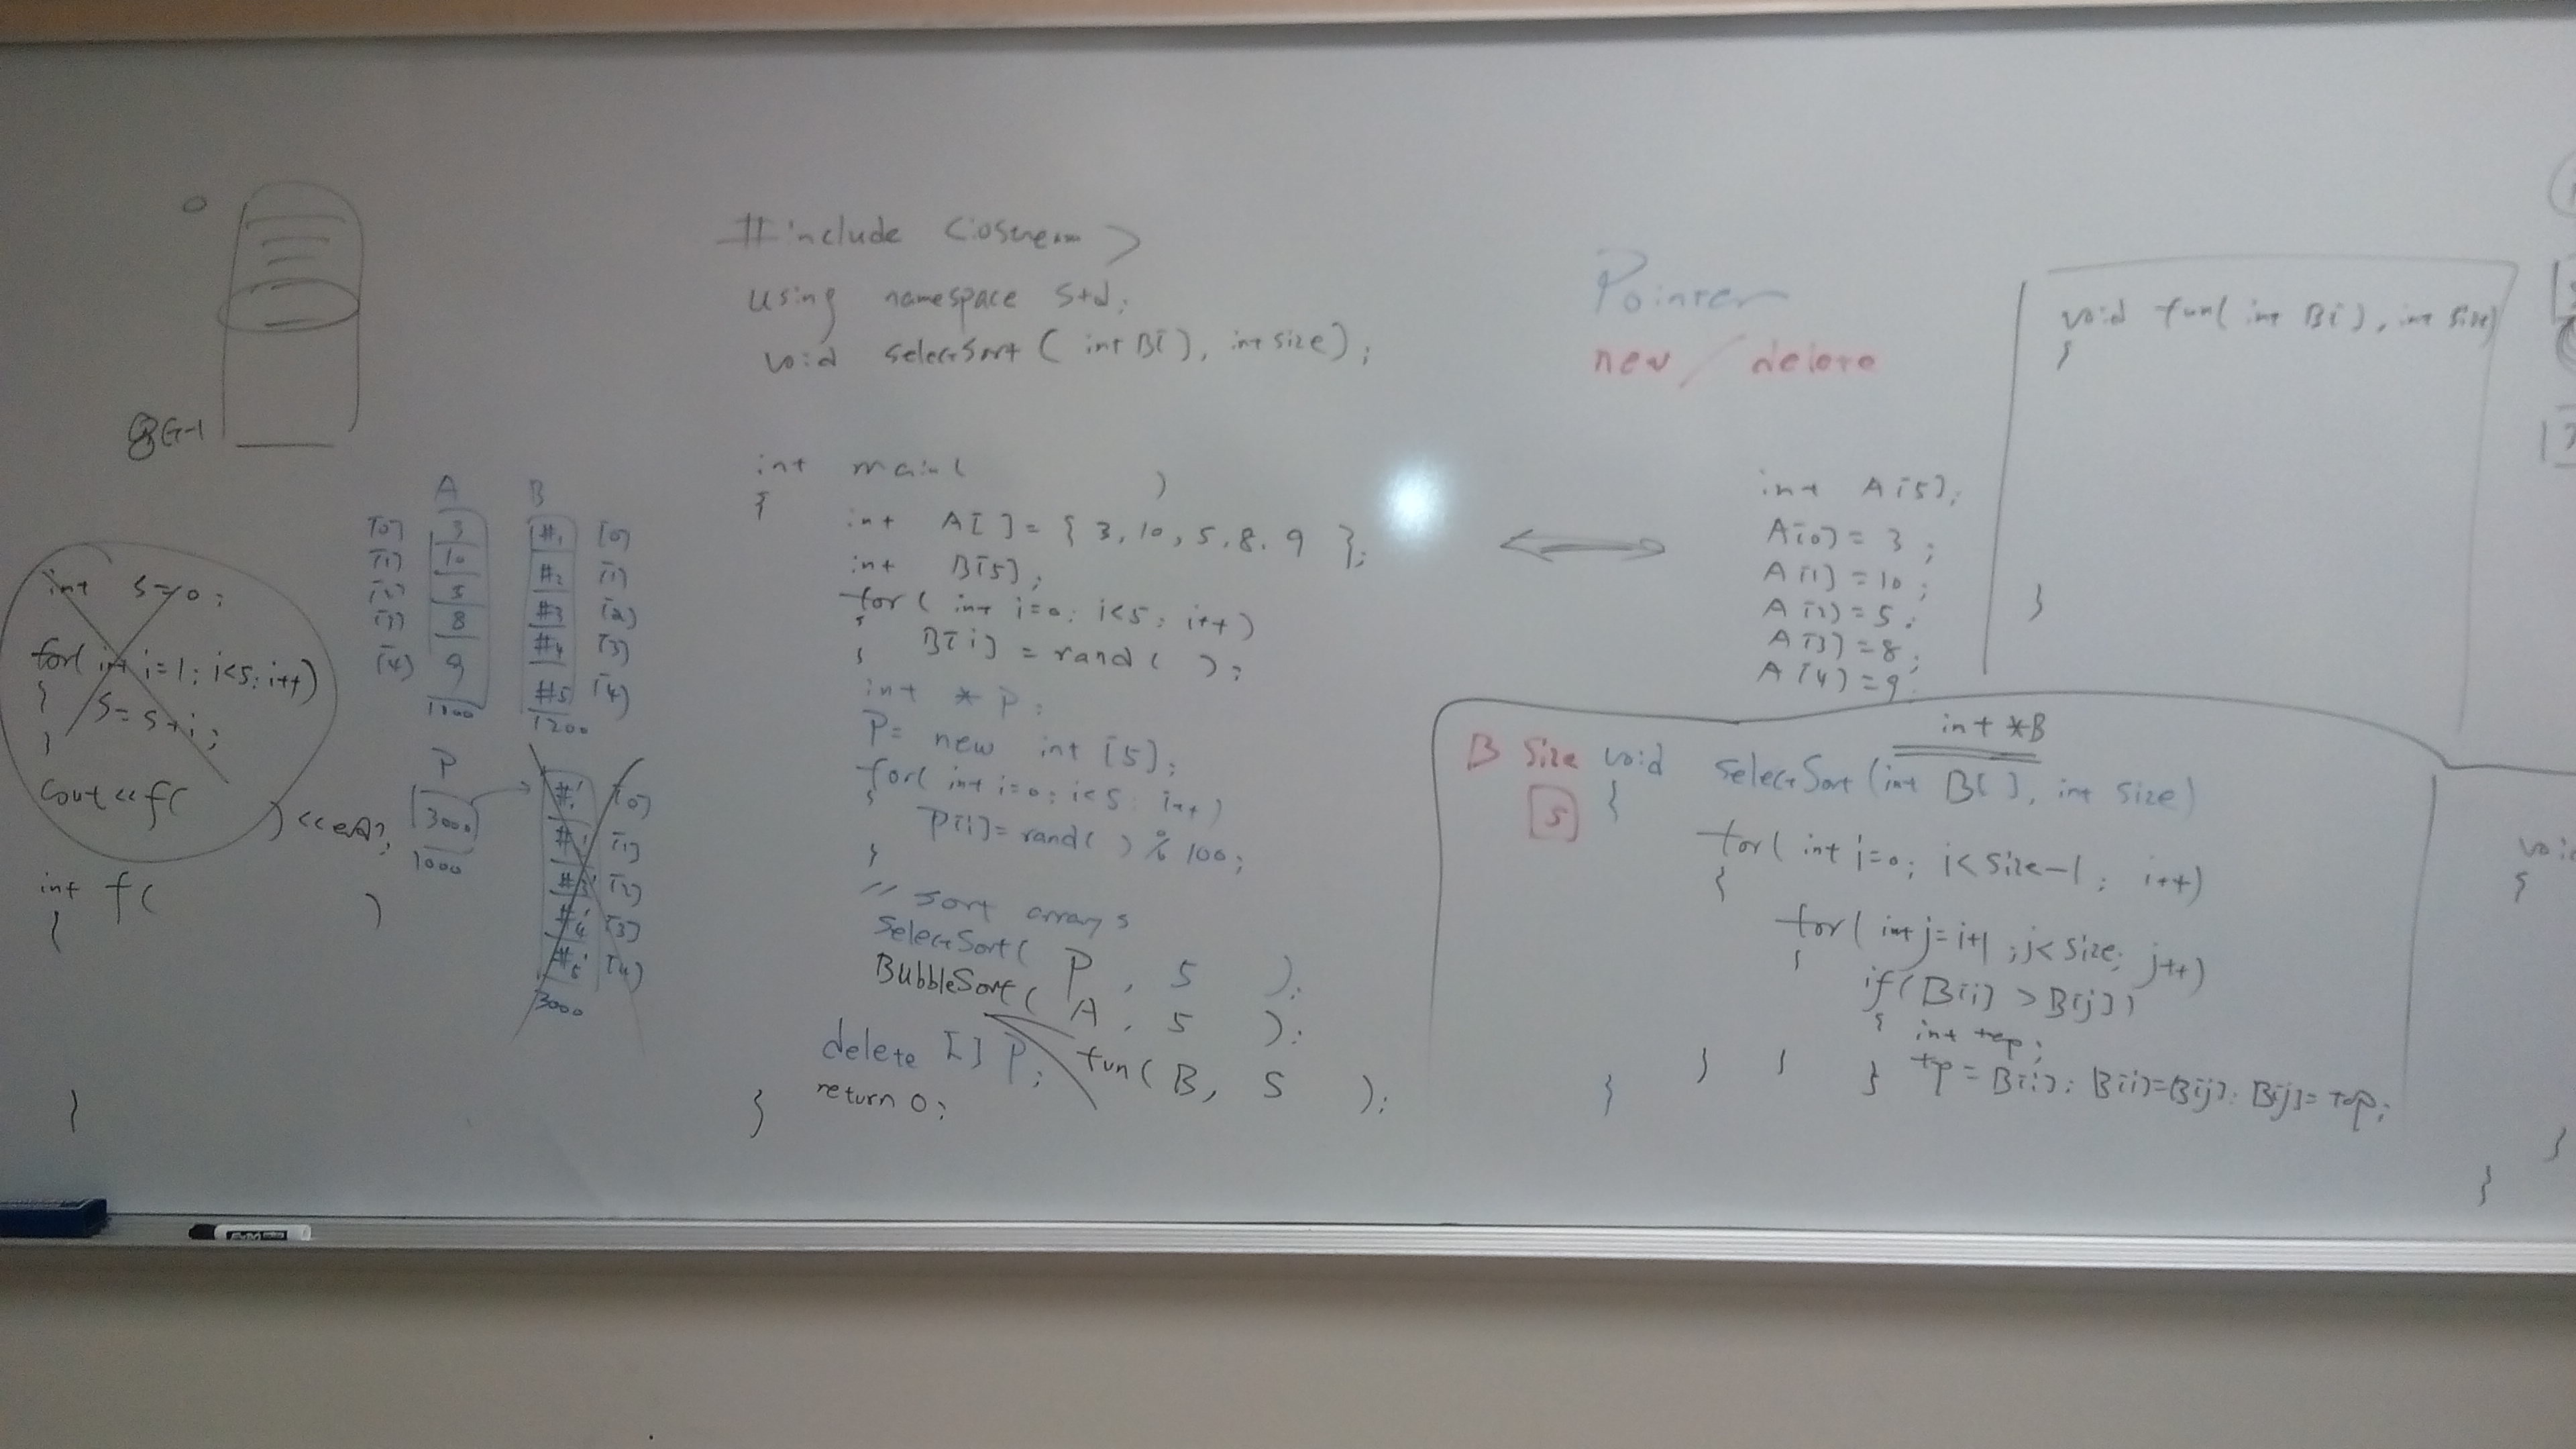 0
8G-1
int s=0;
for( int i=1; i<5; i++)
{
s=s+i;
}
cout<<f( )<<endl;
int f( )
{
}
A B
[0] 3 #1 [0]
[1] 10 #2 [1]
[2] 5 #3 [2]
[3] 8 #4 [3]
[4] 9 #5 [4]
1200
P
3000
1000
#1' [0]
[1]
#3' [2]
#4' [3]
#5' [4]
3000
#include <iostream>
using namespace std;
void selectSort( int B[], int size);
int main( )
{
int A[ ]= { 3, 10, 5, 8, 9 };
int B[5];
for( int i=0; i<5; i++)
{ B[i] = rand( );
}
int *P;
P= new int [5];
for( int i=0; i<5; i++)
{
P[i]=rand( ) % 100;
}
// sort arrays
selectSort( P , 5 );
BubbleSort( A , 5 );
delete [] P; fun( B, 5 );
return 0;
}
Pointer
new / delete
int A[5];
A[0]= 3;
A[1]=10;
A[2]=5;
A[3]=8;
A[4]=9;
void fun( int B[], int size)
{
}
int *B
B size void selectSort(int B[ ], int size)
5 {
for( int i=0; i<size-1; i++)
{
for( int j=i+1; j<size; j++)
{
if(B[i] > B[j])
{ int tep;
} } } } tp = B[i]; B[i]=B[j]; B[j]= tep;
{
}
}